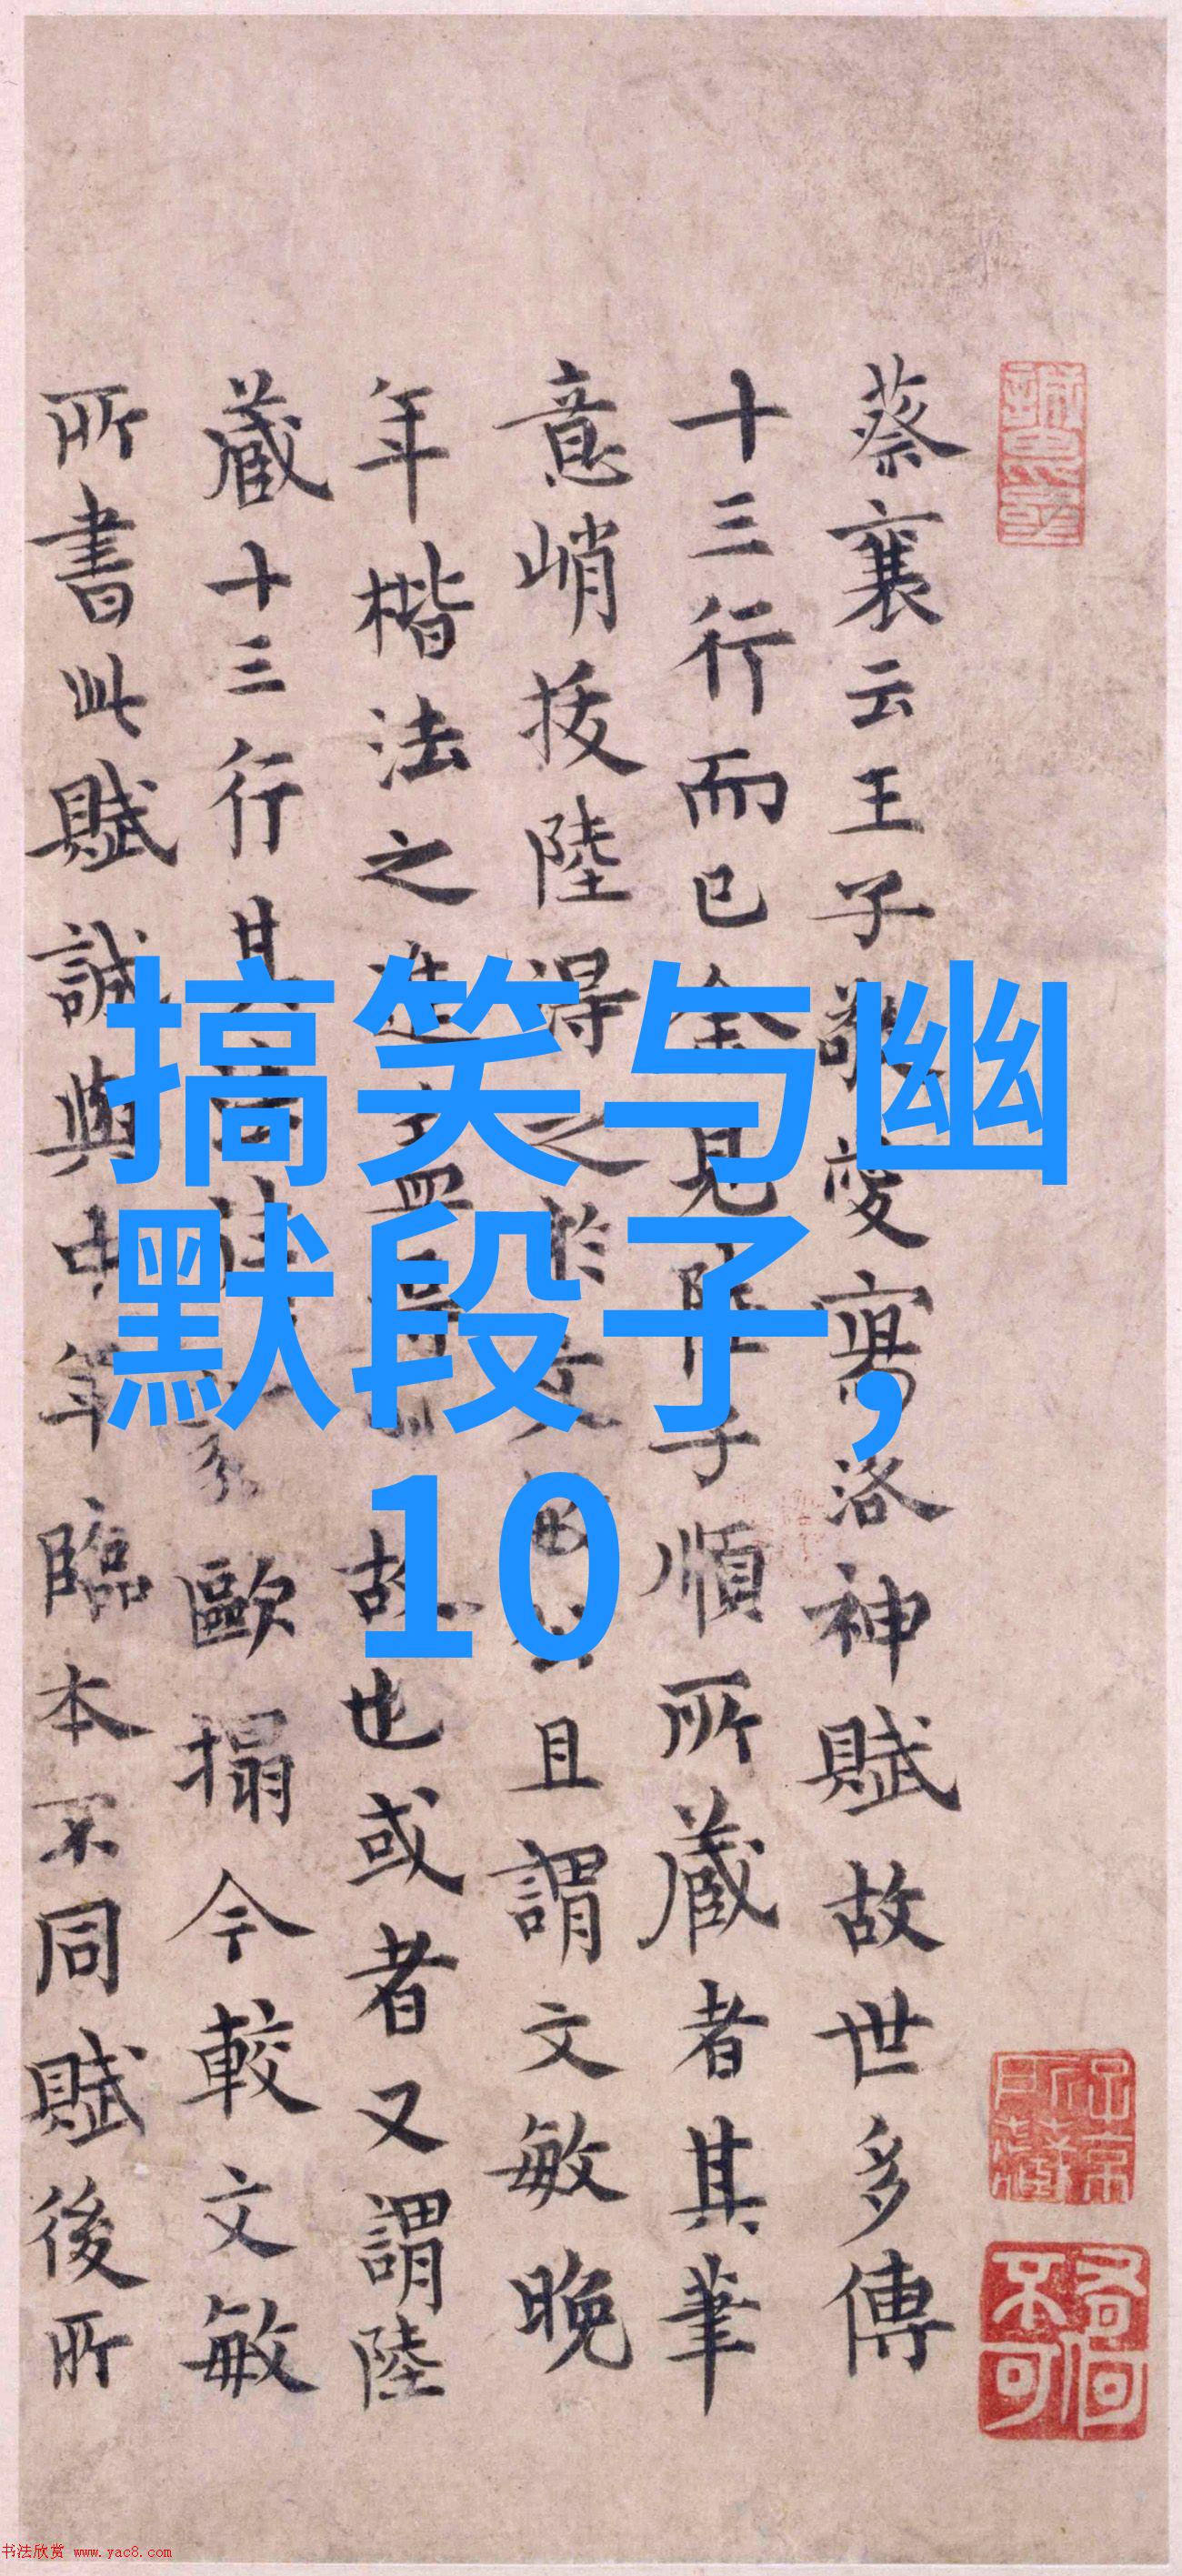 蔡襄云王子敬愛寫洛神賦故世多傳
十三行而已余見陸子順所藏者其筆
意峭拔陸得之於文敏公且謂文敏晚
年楷法之進故也或者又謂陸
藏十三行歐搨今較文敏
所書此賦誠與中年臨本不同賦後所
搞笑与幽
默段子，
10
书法欣赏 www.yac8.com